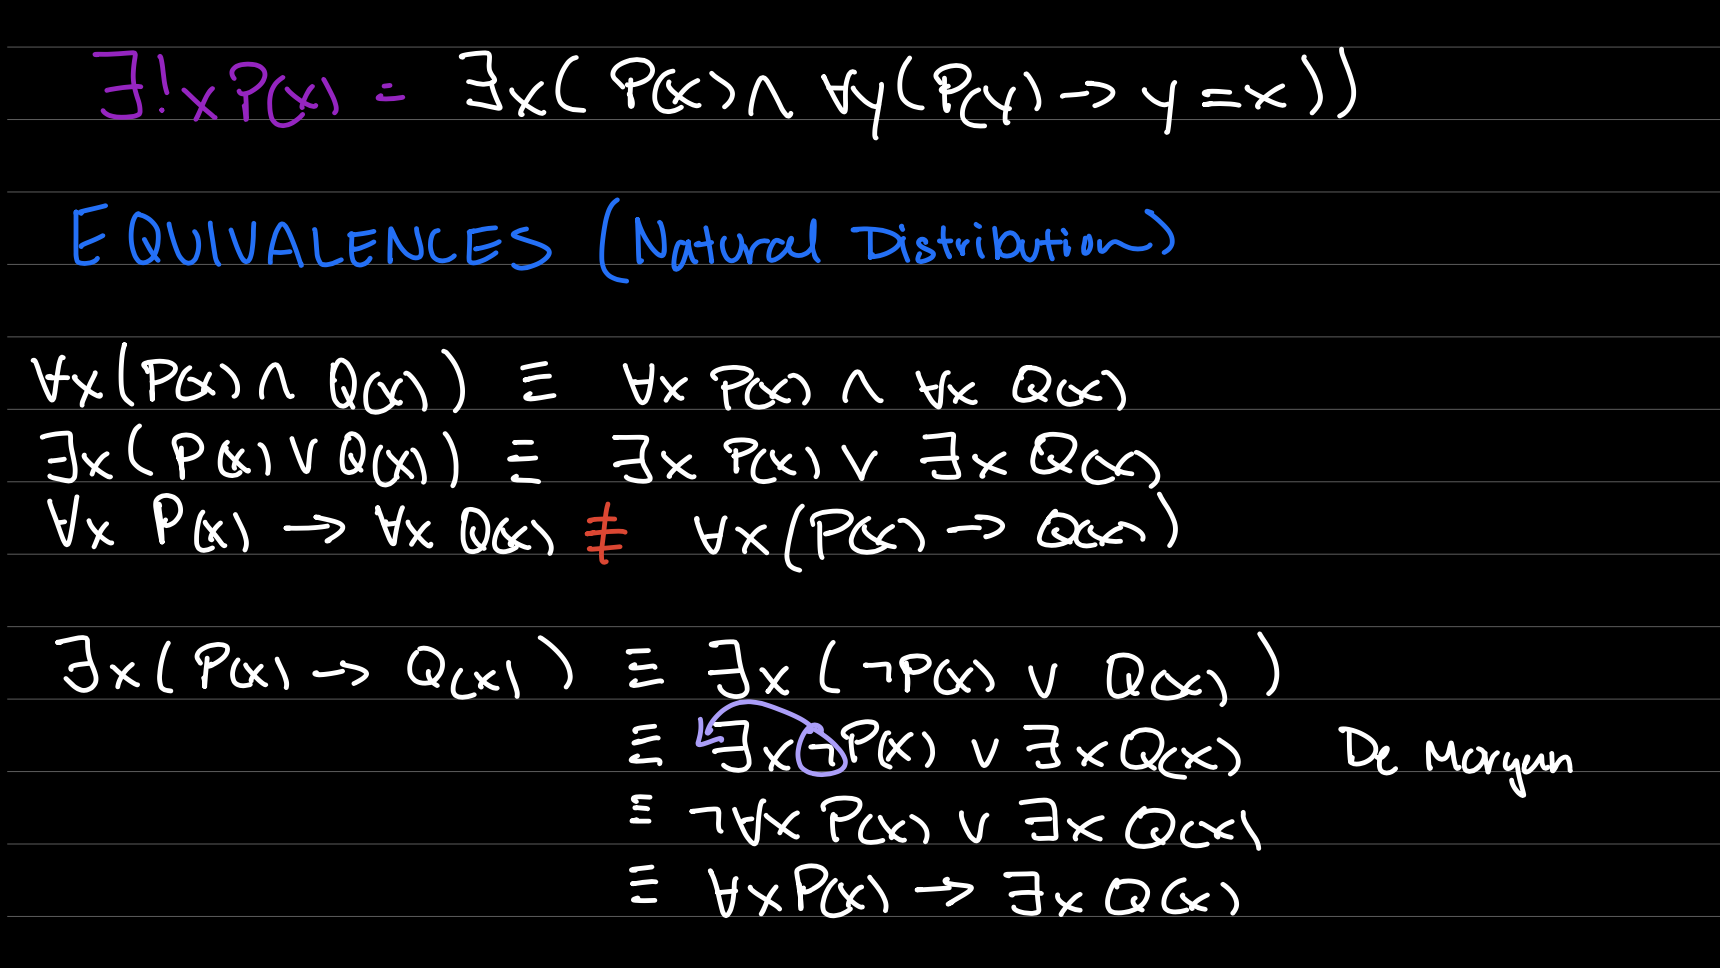 ∃!xP(x) = ∃x(P(x)∧ ∀y(P(y)→ y=x))
EQUIVALENCES (Natural Distribution)
∀x(P(x)∧ Q(x)) ≡ ∀x P(x) ∧ ∀x Q(x)
∃x(P(x)∨Q(x)) ≡ ∃x P(x) ∨ ∃x Q(x)
∀x P(x) → ∀x Q(x) ≢ ∀x(P(x) → Q(x))
∃x(P(x) → Q(x)) ≡ ∃x(¬P(x) ∨ Q(x))
≡ ∃x¬P(x) ∨ ∃xQ(x) De Morgan
≡ ¬∀x P(x) ∨ ∃x Q(x)
≡ ∀xP(x) → ∃x Q(x)